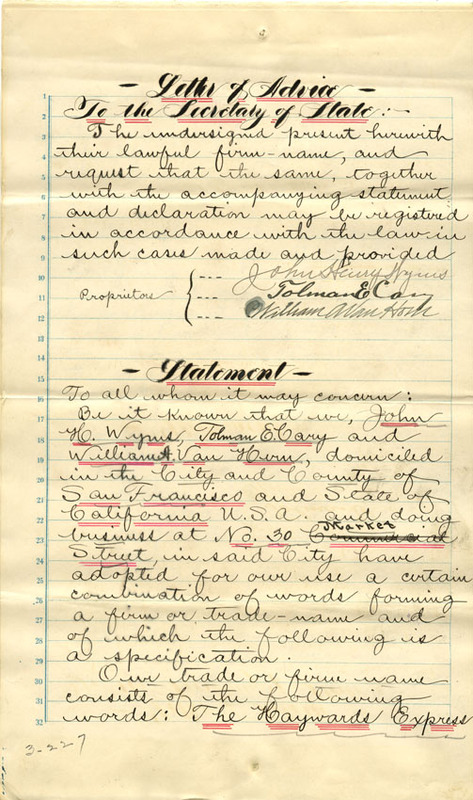 — Letter of Advice —
To the Secretary of State:-
The undersigned present herewith
their lawful firm-name, and
request that the same, together
with the accompanying statement
and declaration may be registered
in accordance with the law in
such cases made and provided
John Henry Wyms
Proprietors { Tolman E Cary
William A Van Horn
— Statement —
To all whom it may concern:
Be it known that we, John
H. Wyms, Tolman E. Cary and
William A. Van Horn, domiciled
in the City and County of
San Francisco and State of
California U.S.A. and doing
Market
business at No. 30 Commercial
Street, in said City have
adopted for our use a certain
combination of words forming
a firm or trade-name and
of which the following is
a specification.
Our trade or firm name
consists of the following
words: The Haywards Express
3-227